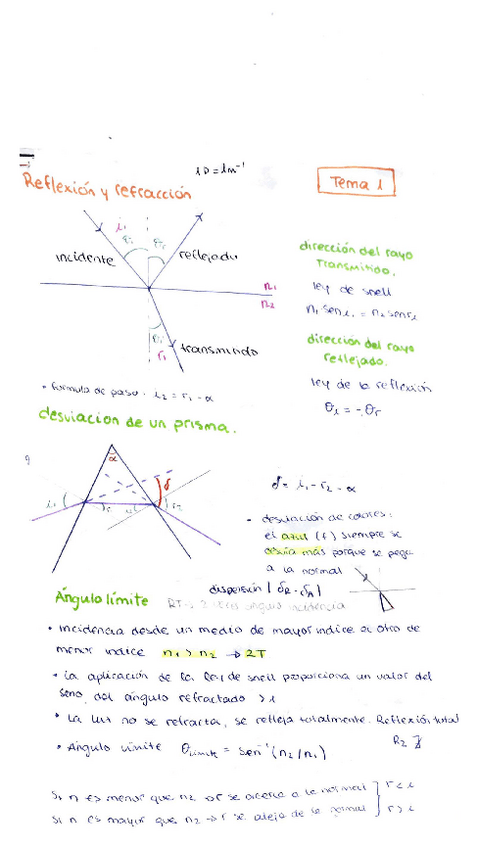 1D = 1m⁻¹
Reflexión y refracción
Tema 1
i₁
θi θr
incidente
reflejado
n₁
n₂
θt
r₁
transmitido
dirección del rayo
Transmitido.
ley de snell
n₁ sen i₁ = n₂ sen r₁
dirección del rayo
reflejado.
ley de la reflexión
θi = -θr
• formula de paso: i₂ = r₁ - α
desviacion de un prisma.
α
δ
i₁
r₂
δ = i₁ - r₂ - α
• desviación de colores:
el azul (F) siempre se
desvia más porque se pega
a la normal
dispersión | δR - δA |
Ángulo límite
ángulo incidencia
• Incidencia desde un medio de mayor indice a otro de
menor indice n₁ > n₂ → RT
• La aplicación de la ley de snell proporciona un valor del
seno del ángulo refractado > 1
• La luz no se refracta, se refleja totalmente. Reflexión total
• Angulo límite θlimite = sen⁻¹ (n₂/n₁)
Si n es menor que n₂ → r se acerca a la normal } r < i
Si n es mayor que n₂ → r se aleja de la normal } r > i